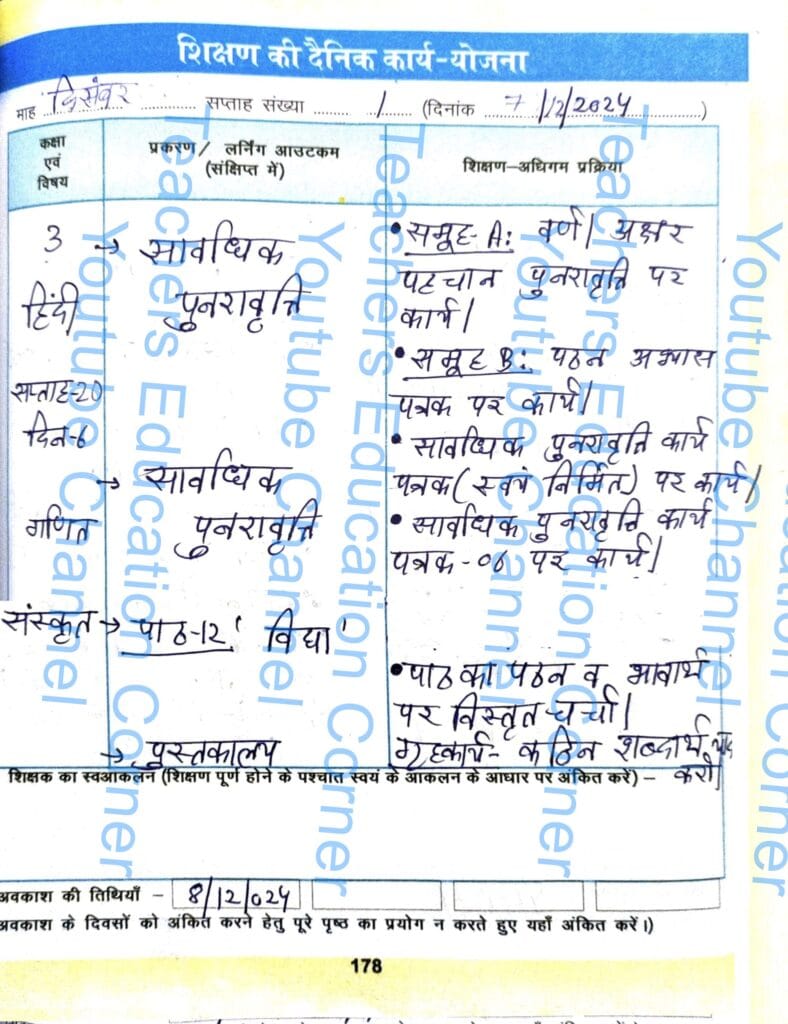 शिक्षण की दैनिक कार्य-योजना
माह दिसंबर सप्ताह संख्या 1 (दिनांक 7/12/2024)
कक्षा एवं विषय
प्रकरण/ लर्निंग आउटकम (संक्षिप्त में)
शिक्षण-अधिगम प्रक्रिया
3
हिंदी
सप्ताह-20
दिन-6
→ सावधिक
पुनरावृत्ति
• समूह-A: वर्ण/ अक्षर
पहचान पुनरावृत्ति पर
कार्य।
• समूह B: पठन अभ्यास
पत्रक पर कार्य।
• सावधिक पुनरावृत्ति कार्य
पत्रक (स्वयं निर्मित) पर कार्य।
गणित
→ सावधिक
पुनरावृत्ति
• सावधिक पुनरावृत्ति कार्य
पत्रक-06 पर कार्य।
संस्कृत → पाठ-12 'विद्या'
• पाठ का पठन व भावार्थ
पर विस्तृत-चर्चा।
→ पुस्तकालय
गृहकार्य- कठिन शब्दार्थ याद
करो।
शिक्षक का स्वआकलन (शिक्षण पूर्ण होने के पश्चात स्वयं के आकलन के आधार पर अंकित करें) –
अवकाश की तिथियाँ – 8/12/024
अवकाश के दिवसों को अंकित करने हेतु पूरे पृष्ठ का प्रयोग न करते हुए यहाँ अंकित करें।)
178
Teachers Education Corner
Youtube Channel
Teachers Education Corner
Youtube Channel
Teachers Education Corner
Youtube Channel